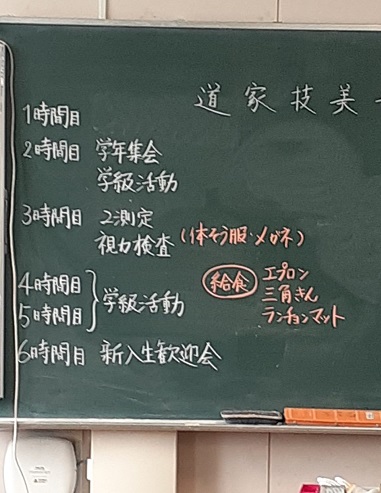 道家技美
1時間目
2時間目 学年集会
学級活動
3時間目 2測定
視力検査 (体そう服・メガネ)
4時間目
5時間目 学級活動
給食 エプロン
三角きん
ランチョンマット
6時間目 新入生歓迎会